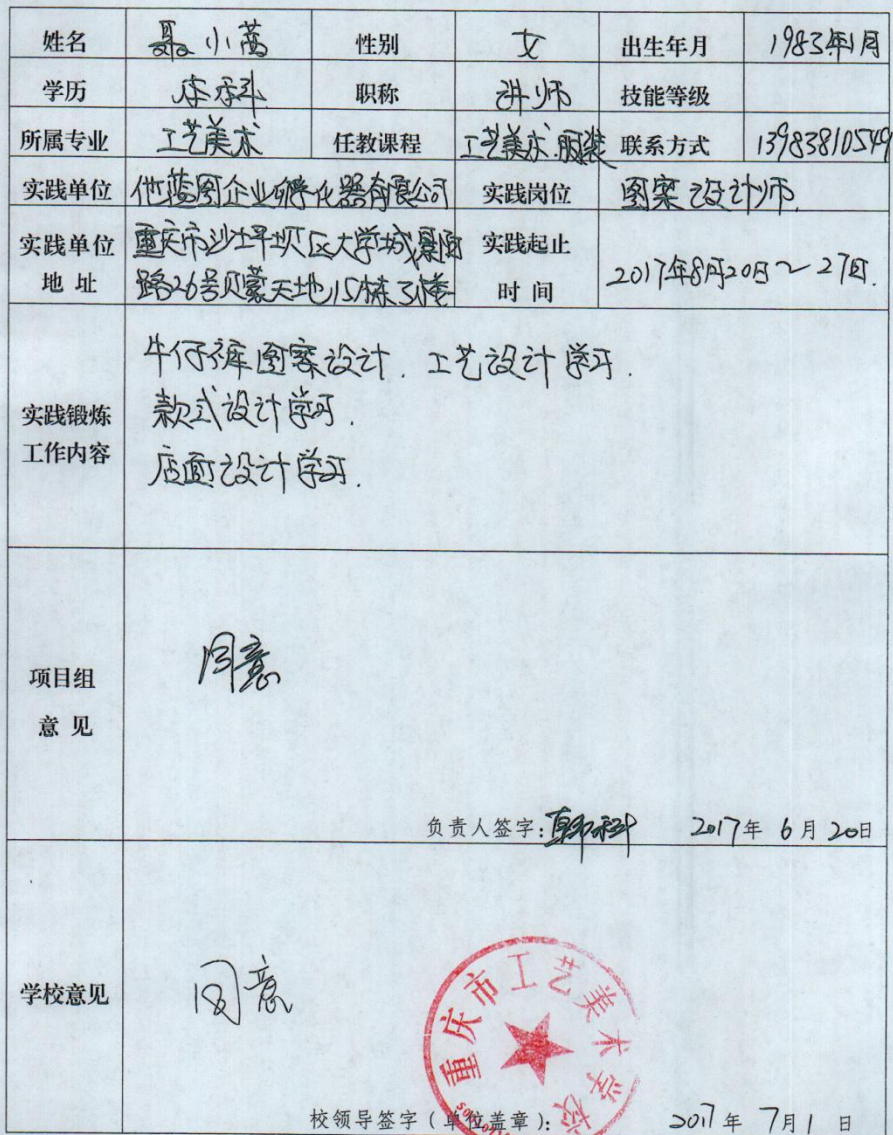 姓名 聂小茜 性别 女 出生年月 1983年1月
学历 本科 职称 讲师 技能等级
所属专业 工艺美术 任教课程 工艺美术.服装 联系方式 13983810549
实践单位 他蓝图企业孵化器有限公司 实践岗位 图案设计师.
实践单位 重庆市沙坪坝区大学城景阳 实践起止
地 址 路26号贝蒙天地15栋3楼 时 间 2017年8月20日~27日.
牛仔裤图案设计. 工艺设计学习.
实践锻炼 款式设计学习.
工作内容 店面设计学习.
项目组 同意
意 见
负责人签字: 2017年 6月 20日
学校意见 同意
重庆市工艺美术学校
校领导签字(单位盖章): 2017年 7月1 日